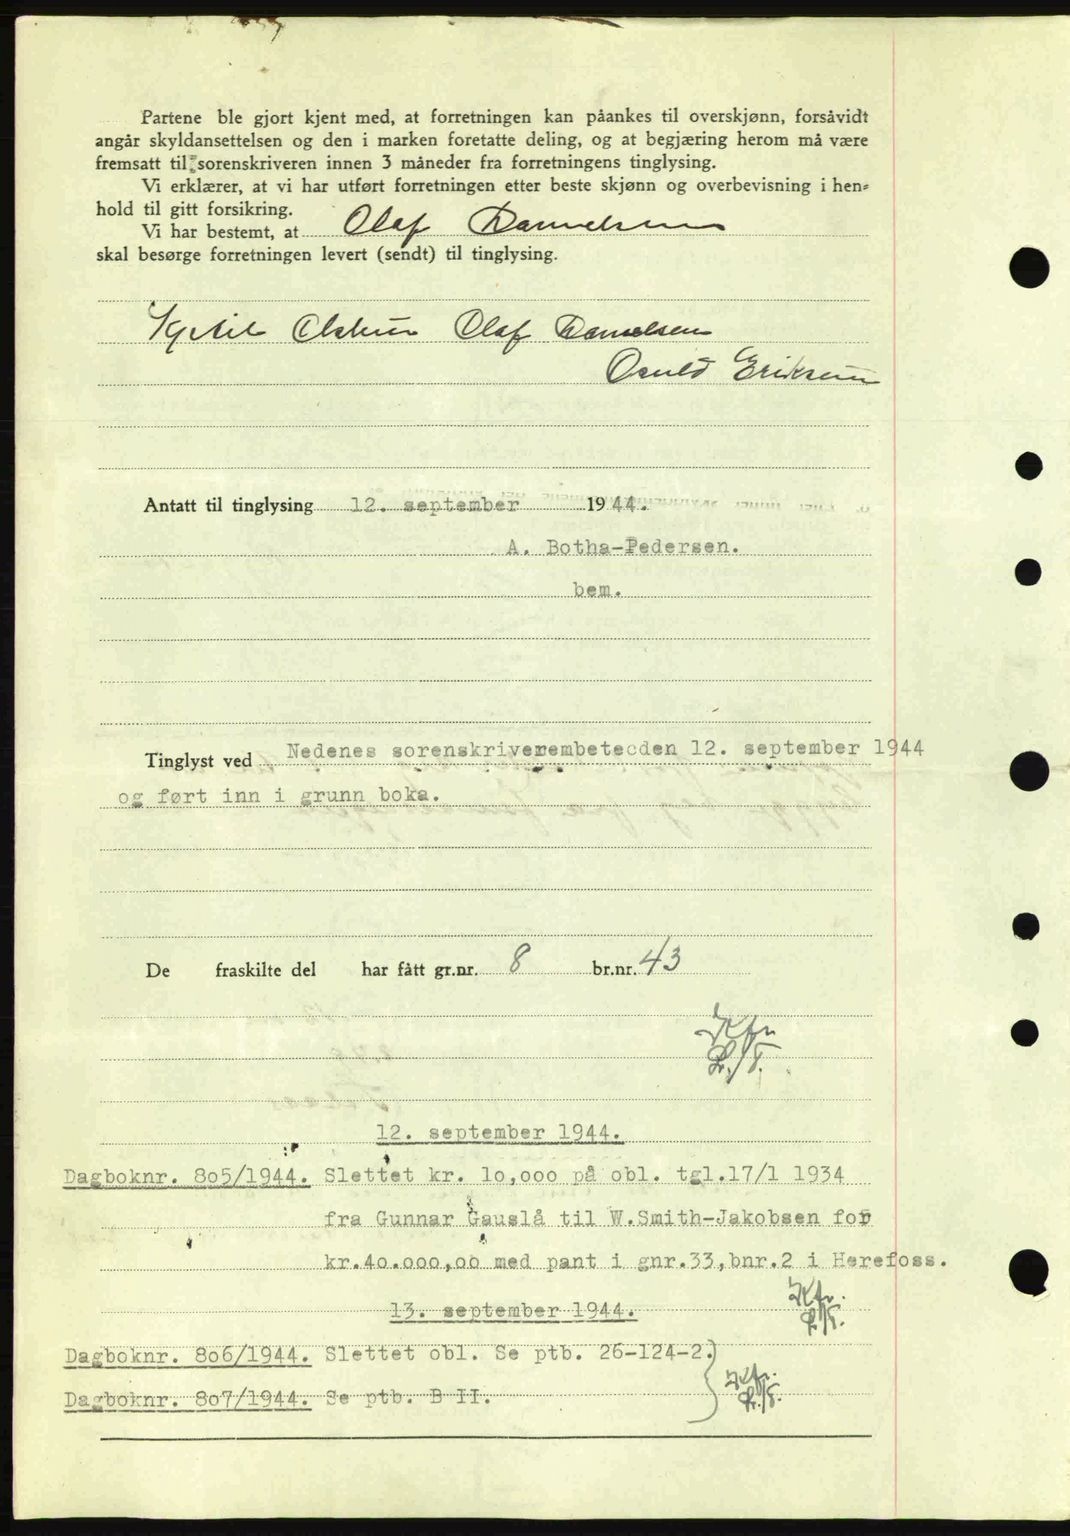 Partene ble gjort kjent med, at forretningen kan påankes til overskjønn, forsåvidt
angår skyldansettelsen og den i marken foretatte deling, og at begjæring herom må være
fremsatt til sorenskriveren innen 3 måneder fra forretningens tinglysing.
Vi erklærer, at vi har utført forretningen etter beste skjønn og overbevisning i hen-
hold til gitt forsikring.
Vi har bestemt, at Olaf Danielsen
skal besørge forretningen levert (sendt) til tinglysing.
Olaf Danielsen
Osuld Eriksen
Antatt til tinglysing 12. september 1944.
A. Botha-Pedersen.
bem.
Tinglyst ved Nedenes sorenskriverembetecden 12. september 1944
og ført inn i grunn boka.
De fraskilte del har fått gr.nr. 8 br.nr. 43
Kfr.
12. september 1944.
Dagboknr. 805/1944. Slettet kr. 10,000 på obl. tgl.17/1 1934
fra Gunnar Gauslå til W.Smith-Jakobsen for
kr.40.000,00 med pant i gnr.33,bnr.2 i Herefoss.
13. september 1944.
Kfr.
Dagboknr. 806/1944. Slettet obl. Se ptb. 26-124-2.
Kfr.
Dagboknr. 807/1944. Se ptb. B II.